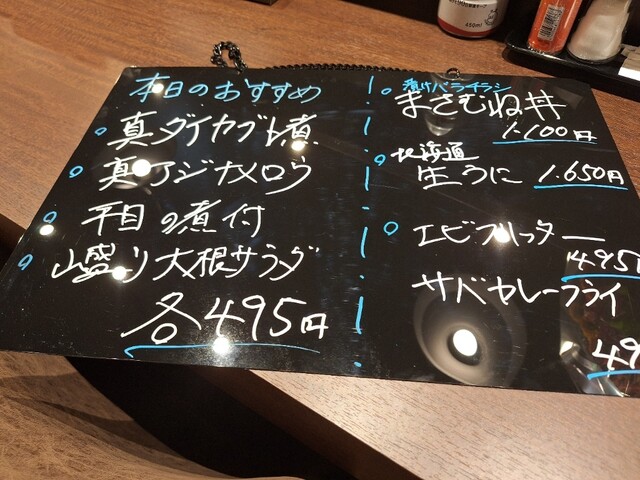 本日のおすすめ
真ダイカブト煮
真アジナメロウ
平目の煮付
山盛り大根サラダ
各495円
漬けバラチラシ
まさむね丼
1.100円
北海道
生うに 1.650円
エビフリッター
495円
サバカレーフライ
49
450ml